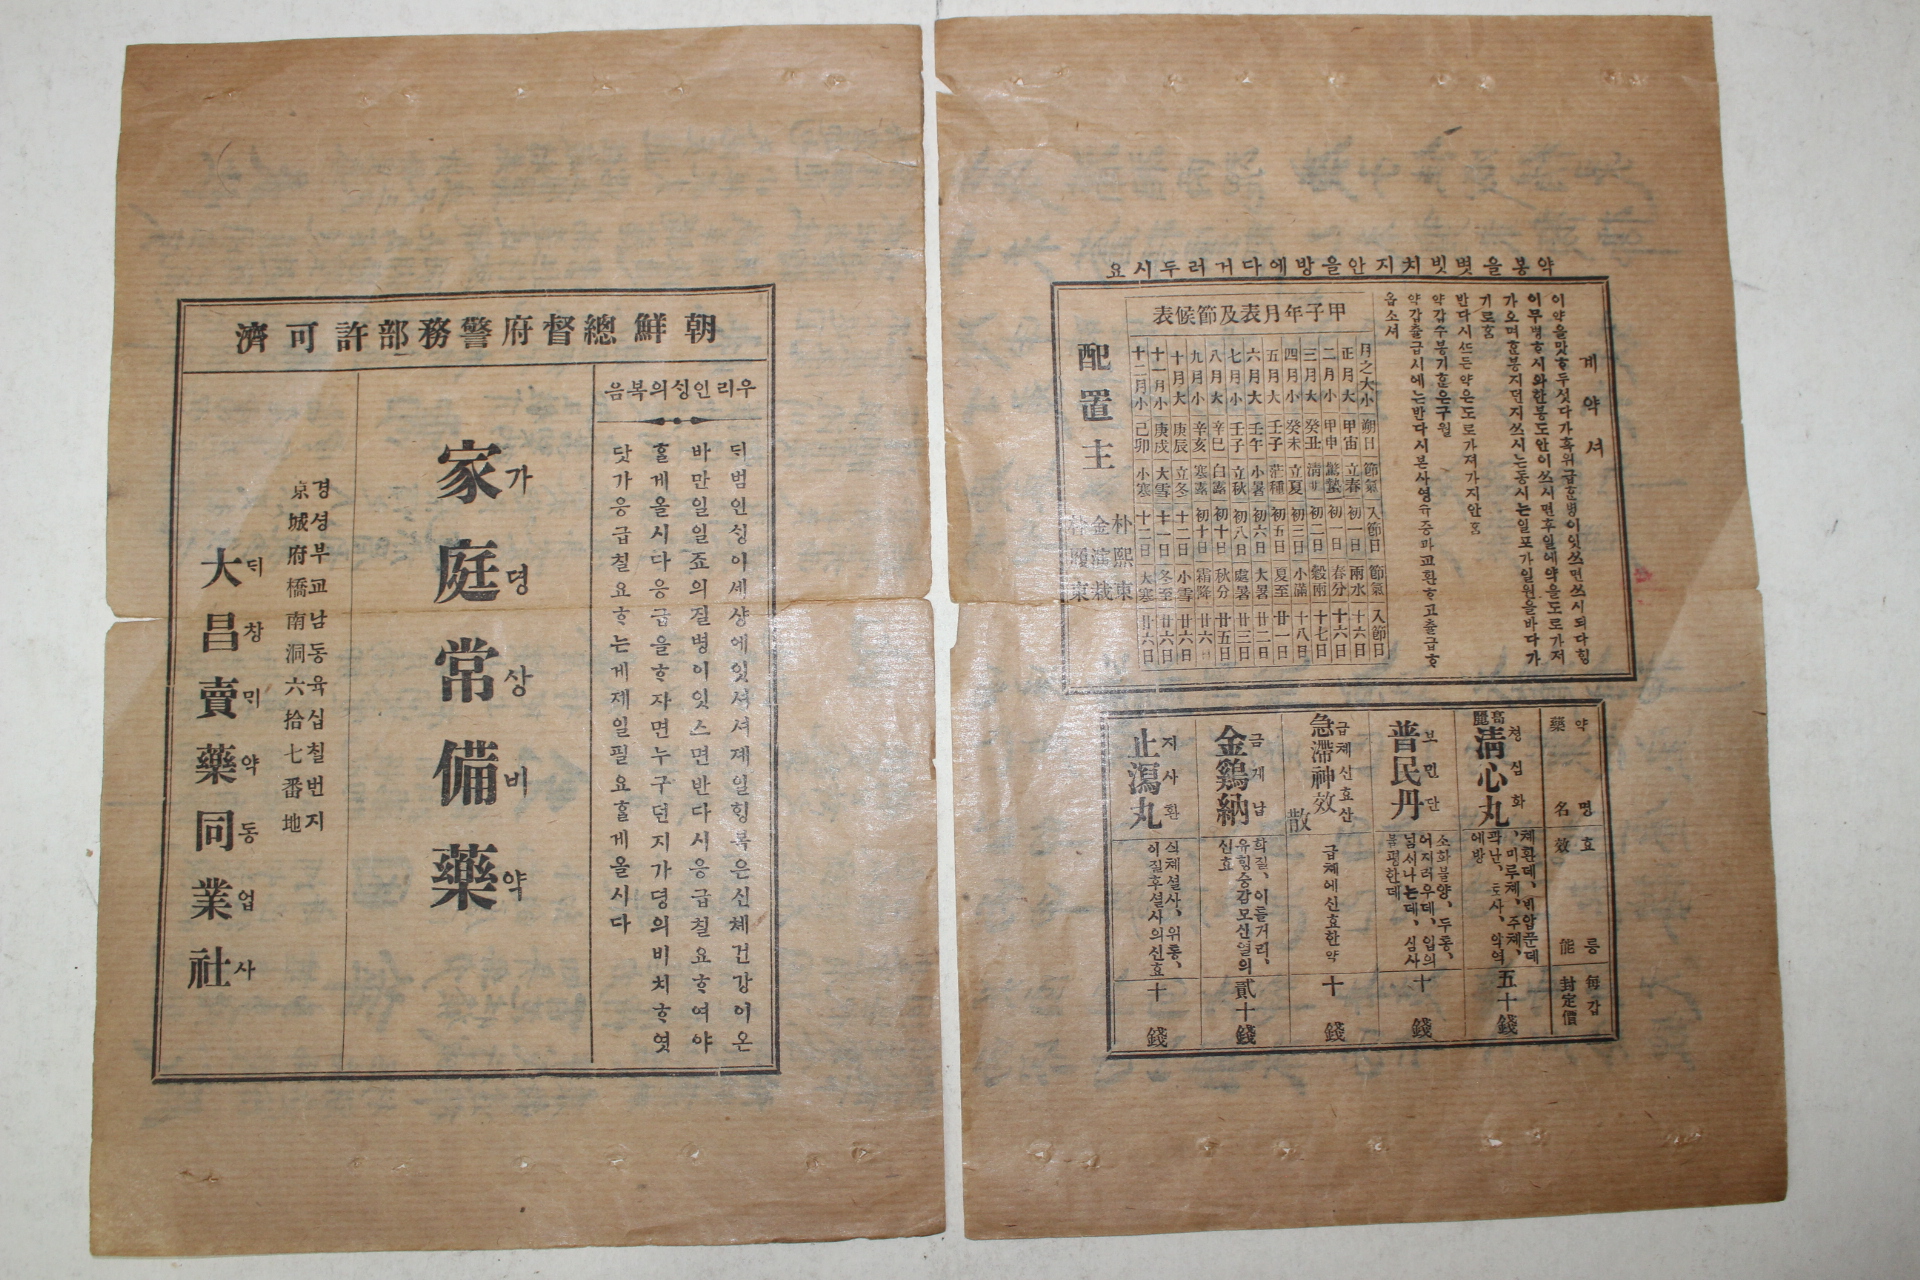 약봉을볏빗치지안을방에다거러두시요
계약셔
이약을맛흐두섯다가흑위급흔병이잇쓰면쓰시되다힝
이무병ᄒᆞ시와한봉도안이쓰시면후일에약을도로가저
가오며흔봉지던지쓰시는동시는일포가일원을바다가
기로홈
반다시쓰든약은도로가져가지안홈
약갑수봉기흔은구월
약갑출급시에는반다시본사영슈증과교환ᄒᆞ고출급ᄒᆞ
옵소셔
甲子年月表及節候表
月之大小 朔日 節氣 入節日 節氣 入節日
正月大 甲寅 立春 初一日 雨水 十六日
二月小 甲申 驚蟄 初一日 春分 十六日
三月大 癸丑 淸明 初二日 穀雨 十七日
四月小 癸未 立夏 初三日 小滿 十八日
五月大 壬子 茫種 初五日 夏至 廿一日
六月大 壬午 小暑 初六日 大暑 廿二日
七月小 壬子 立秋 初八日 處暑 廿三日
八月大 辛巳 白露 初十日 秋分 廿五日
九月小 辛亥 寒露 初十日 霜降 廿六日
十月大 庚辰 立冬 十二日 小雪 廿六日
十一月小 庚戌 大雪 十一日 冬至 廿六日
十二月小 己卯 小寒 十二日 大寒 廿六日
配置主
朴熙東
약명 藥名 효릉 效能 每갑 封定價
高麗淸心丸 청심화 체환데、빈압푼데、미루체、주체、곽난、토사、악역에방 五十錢
普民丹 보민단 소화불양、두통、어지러우데、입의넘서나는데、심사불평한데 十錢
急滯神效散 급체신효산 급체에신효한약 十錢
金鷄納 금게납 학질、이틀거리、유힝증감모산열의신효 貳十錢
止瀉丸 지사환 식체설사、위통、이질후설사의신효 十錢
朝鮮總督府警務部許可濟
우리인싱의복음
ᄃᆡ범인싱이세상에잇셔셔졔일힝복은신체건강이온
바만일일죠의질병이잇스면반다시응급칠요ᄒᆞ여야
홀게올시다응급을ᄒᆞ자면누구던지가뎡의비치ᄒᆞ엿
닷가응급칠요ᄒᆞ는게제일필요홀게올시다
家庭常備藥
가뎡상비약
경셩부교남동육십칠번지
京城府橋南洞六拾七番地
ᄃᆡ창ᄆᆡ약동업사
大昌賣藥同業社